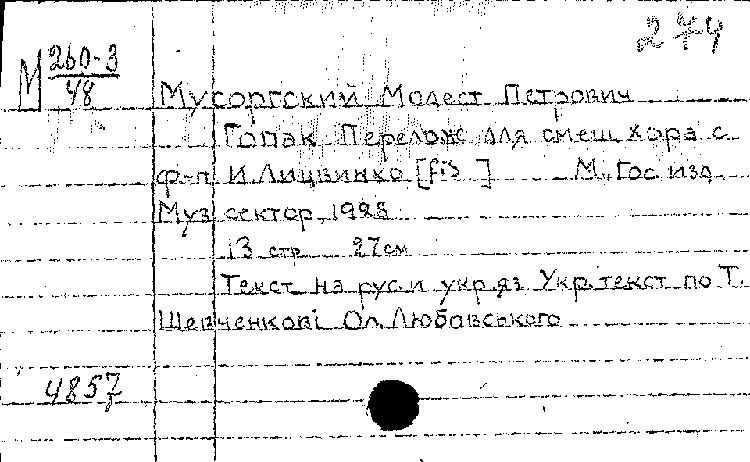 274
М 260-3
48
Мусоргский Модест Петрович
Гопак Перелож для смеш хора с
ф-п И. Лицвинко [fis ] М. Гос изд
Муз сектор, 1928
13 стр 27 см
Текст на рус. и укр яз Укр. текст по Т.
Шевченкові Ол. Любавського
4857